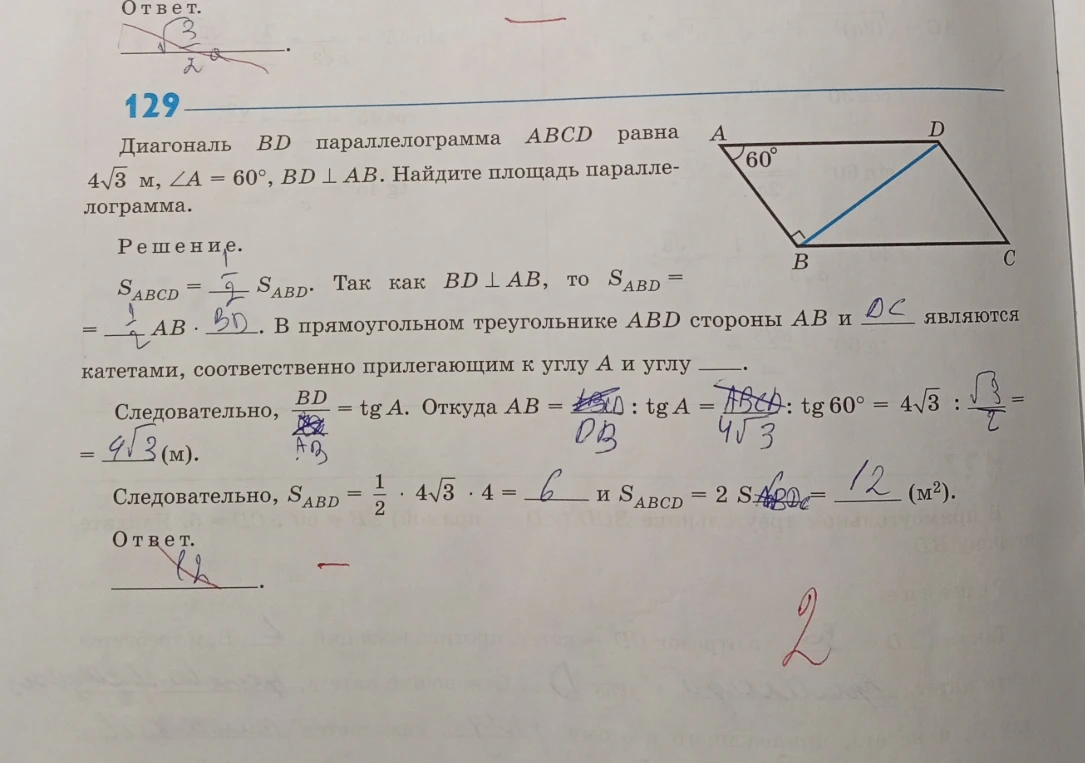 Ответ.
√3
2
.
129
Диагональ BD параллелограмма ABCD равна
4√3 м, ∠A = 60°, BD ⊥ AB. Найдите площадь паралле-
лограмма.
A D
60°
B C
Решение.
S_ABCD = 1/2 S_ABD. Так как BD ⊥ AB, то S_ABD =
= 1/2 AB · BD. В прямоугольном треугольнике ABD стороны AB и DC являются
катетами, соответственно прилегающим к углу A и углу ___.
Следовательно, BD/AB = tg A. Откуда AB = DB : tg A = 4√3 : tg 60° = 4√3 : √3/2 =
= 4√3 (м).
Следовательно, S_ABD = 1/2 · 4√3 · 4 = 6 и S_ABCD = 2 S = 12 (м²).
Ответ.
12 .
2